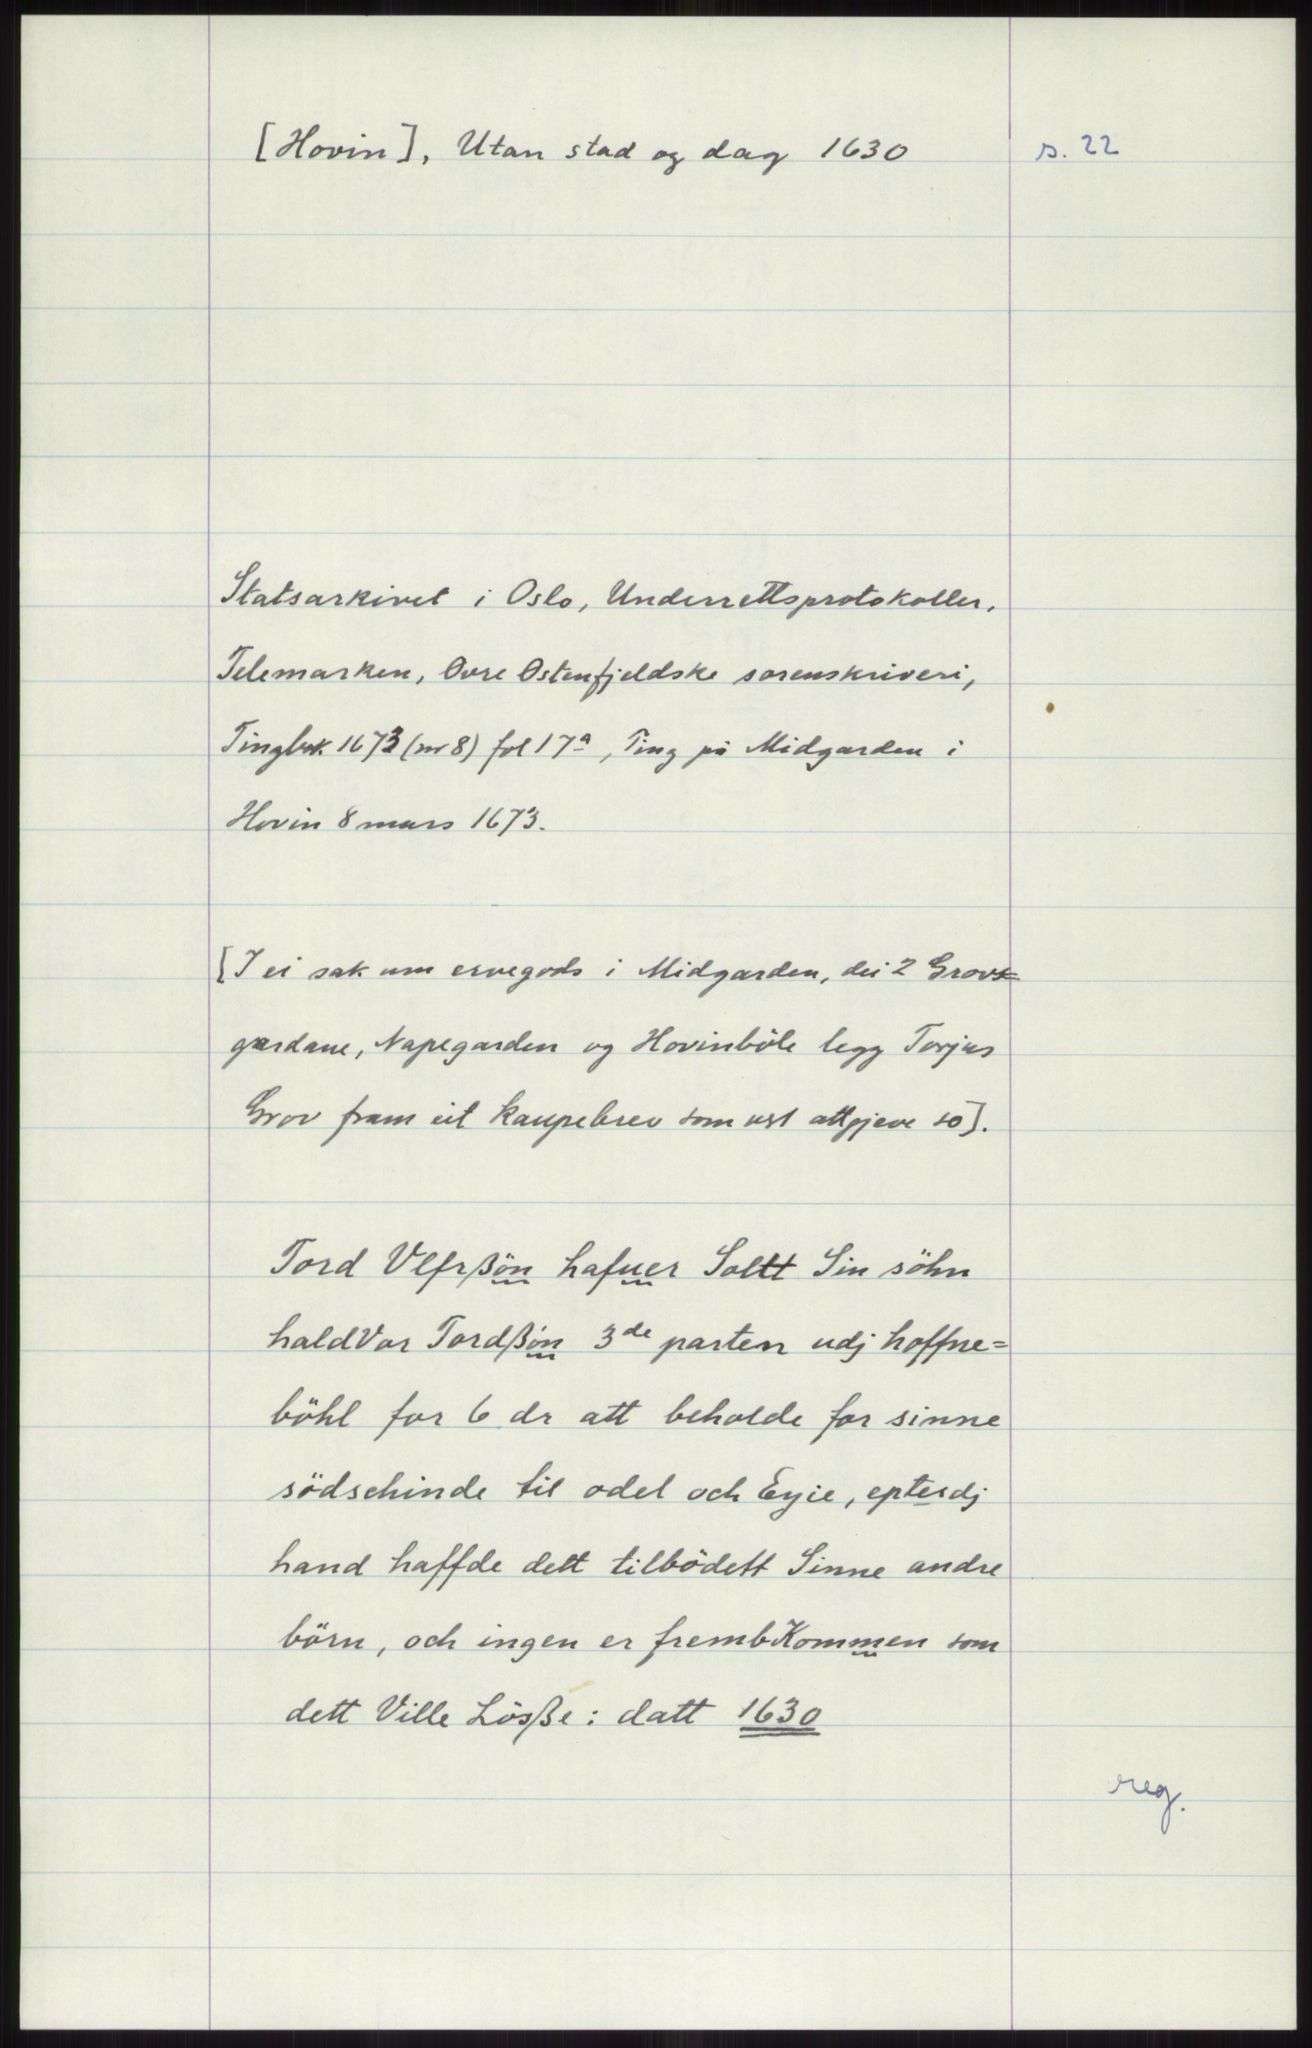 [Hovin], Utan stad og dag 1630 s. 22
Statsarkivet i Oslo, Underrettsprotokoller,
Telemarken, Øvre Østenfjeldske sorenskriveri,
Tingbok 1673 (nr 8) fol 17a, Ting på Midgarden i
Hovin 8 mars 1673.
[I ei sak um ervegods i Midgarden, dei 2 Grovs=
gardane, Napegarden og Hovinbøle legg Torjus
Grov fram eit kaupebrev som vert attgjeve so].
Tord Vlfrßön hafuer Soltt Sin söhn
haldVor Tordßön 3de parten udj hoffne=
böhl for 6 dr att beholde for sinne
södschinde til odel och Eyie, epterdj
hand haffde dett tilbödett Sinne andre
börn, och ingen er frembKommen som
dett Ville Lösße: datt 1630
reg.